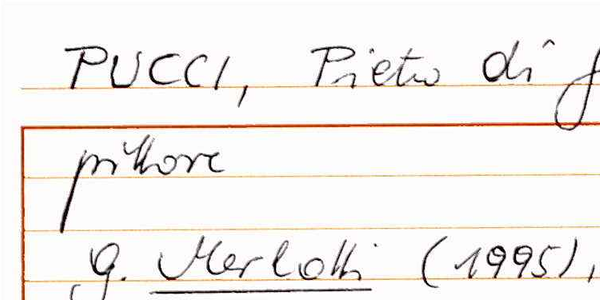 PUCCI, Pietro di
pittore
G. Merlotti (1995),